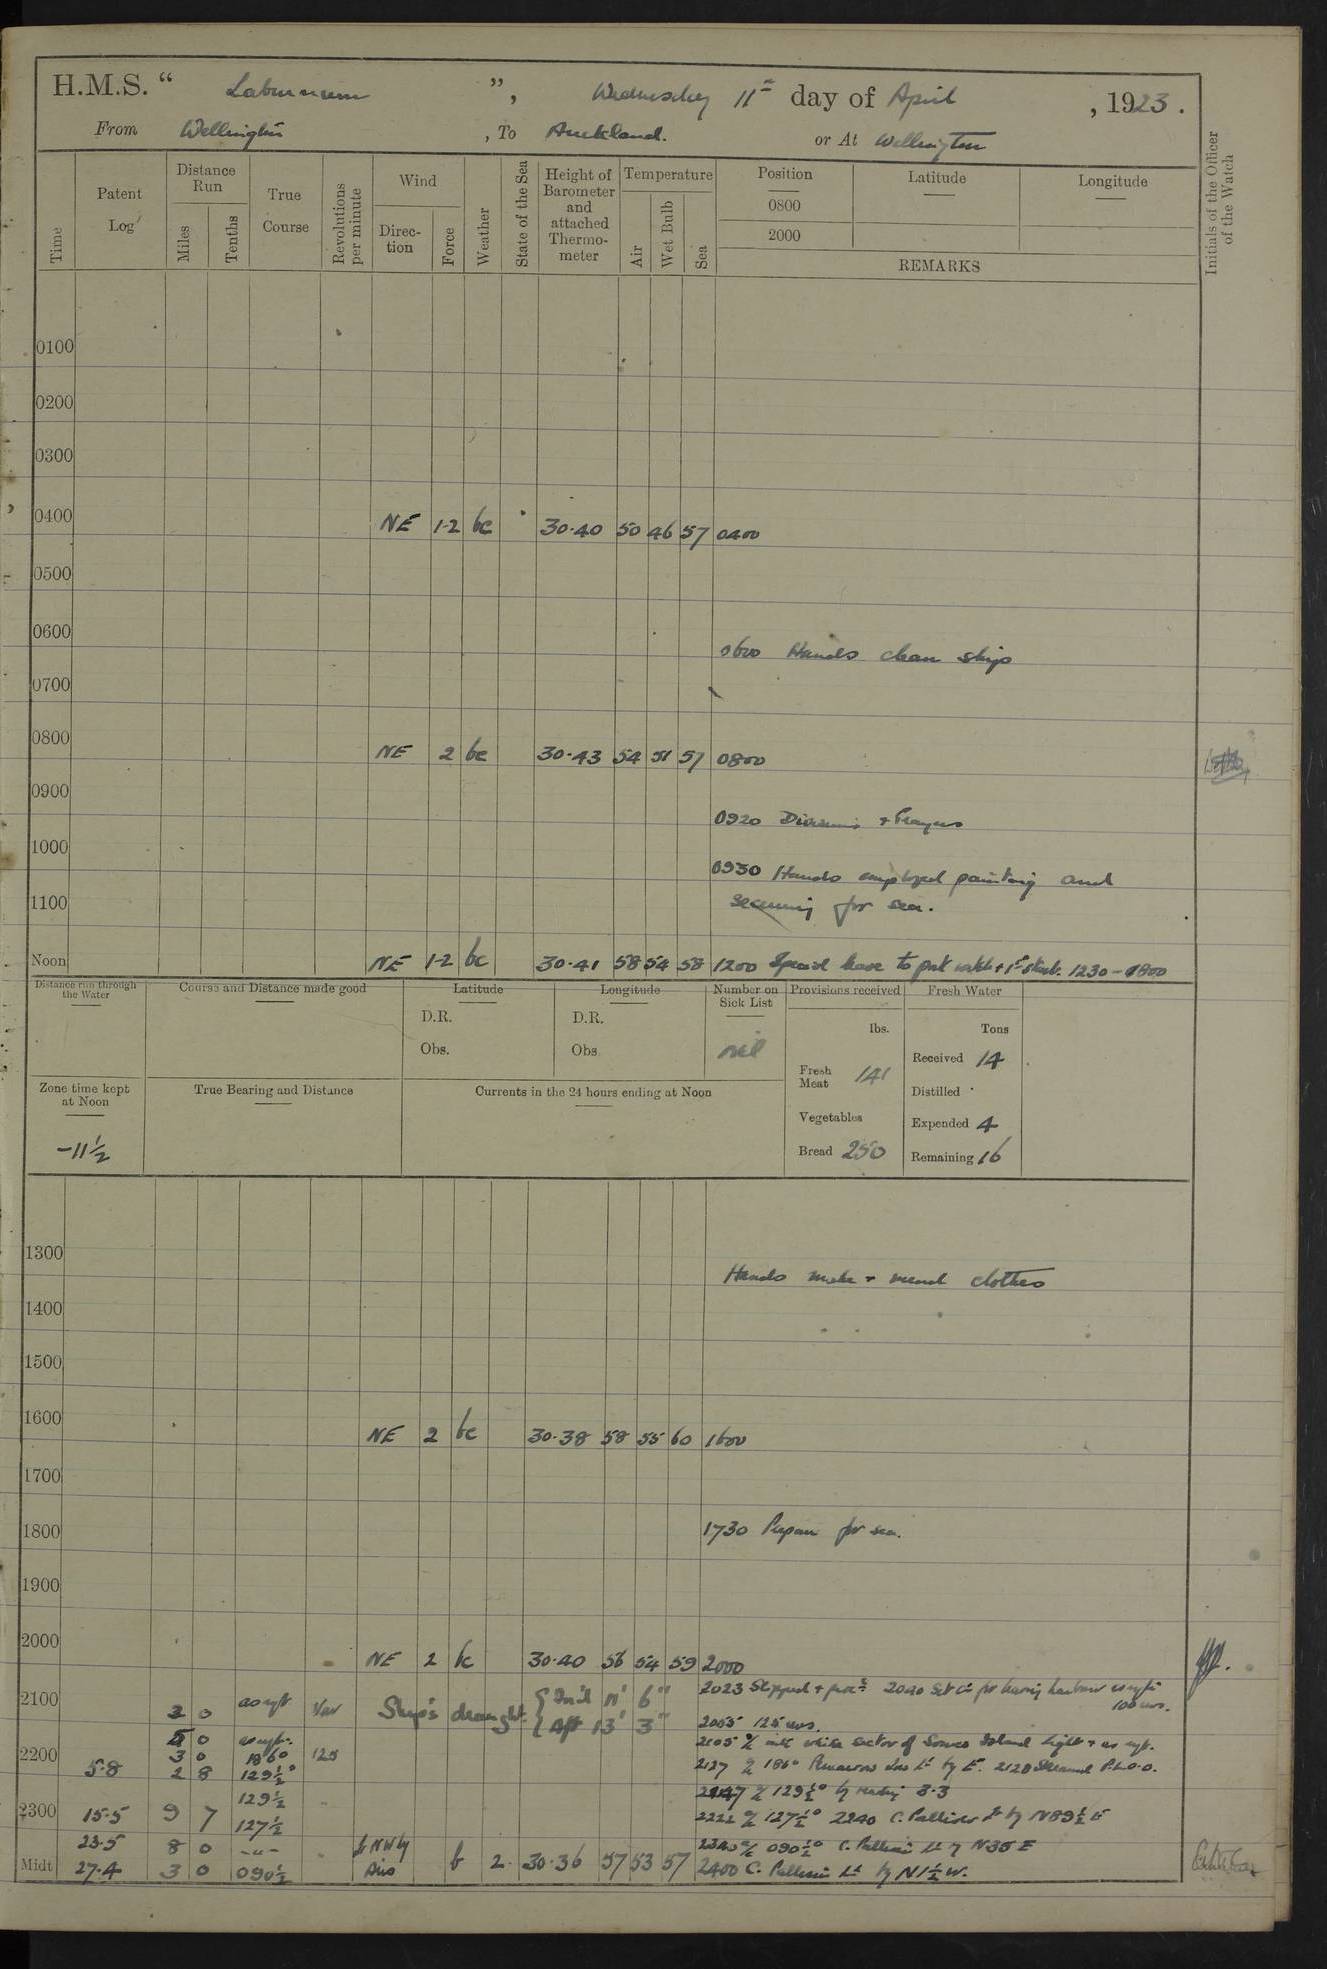 H.M.S. “ Laburnum ”, Wednesday 11th day of April , 1923.
From Wellington , To Auckland. or At Wellington
Time Patent Log Distance Run Miles Tenths True Course Revolutions per minute Wind Direction Force Weather State of the Sea Height of Barometer and attached Thermometer Temperature Air Wet Bulb Sea Position 0800 2000 Latitude Longitude Initials of the Officer of the Watch
REMARKS
0100
0200
0300
0400 NE 1-2 bc 30.40 50 46 57 0400
0500
0600
0600 Hands clean ship
0700
0800 NE 2 bc 30.43 54 51 57 0800
0900
0920 Divisions + Prayers
1000
0930 Hands employed painting and
1100 securing for sea.
Noon NE 1-2 bc 30.41 58 54 58 1200 Special leave to part watch + 1st 1230 - 1800
Distance run through the Water Course and Distance made good Latitude Longitude Number on Sick List Provisions received Fresh Water
D.R. D.R. lbs. Tons
Obs. Obs. nil Received 14
Fresh Meat 141
Zone time kept at Noon True Bearing and Distance Currents in the 24 hours ending at Noon Distilled
Vegetables Expended 4
-11½ Bread 250 Remaining 16
1300
Hands make + mend clothes
1400
1500
1600 NE 2 bc 30.38 58 55 60 1600
1700
1800 1730 Prepare for sea.
1900
2000 NE 2 bc 30.40 56 54 59 2000
2023 Slipped + proc. 2040 Set Co for leaving harbour as reqte 100 revs.
2100 2 0 as reqt Var Ship's draught { For'd 11' 6" Aft 13' 3"
2055 125 revs.
5 0 as reqt. 2105 a/c into white sector of Somes Island Light + as reqt.
2200 3 0 186° 125
5.8 2 8 129½° 2127 a/c 186° Pencarrow Lt by E. 2128 Streamed P.L.O.O.
129½ 2147 a/c 129½° by 3.3
2300 15.5 9 7 127½ 2222 a/c 127½° 2240 C. Palliser Lt by N89½E
23.5 8 0 -"- NW by 2340 a/c 090½° C. Palliser Lt by N35E
Midt 27.4 3 0 090½ Airs b 2. 30.36 57 53 57 2400 C. Palliser Lt by N1½W.